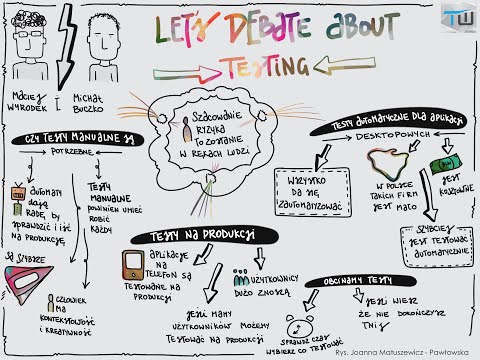 LET'S DEBATE ABOUT
TESTING
TW
MACIEJ
WYRODEK
I
MICHAŁ
BUCZKO
SZACOWANIE
RYZYKA
TO ZOSTANIE
W RĘKACH LUDZI
CZY TESTY MANUALNE SĄ
POTRZEBNE
AUTOMATY
DAJĄ
RADĘ, BY
SPRAWDZIĆ I IŚĆ
NA PRODUKCJĘ
SĄ SZYBSZE
TESTY
MANUALNE
POWINIEN UMIEĆ
ROBIĆ
KAŻDY
CZŁOWIEK
MA
KONTEKSTOWOŚĆ
I KREATYWNOŚĆ
TESTY NA PRODUKCJI
APLIKACJE
NA
TELEFON SĄ
TESTOWANE NA
PRODUKCJI
UŻYTKOWNICY
DUŻO ZNOSZĄ
JEŚLI MAMY
UŻYTKOWNIKÓW MOŻEMY
TESTOWAĆ NA PRODUKCJI
TESTY AUTOMATYCZNE DLA APLIKACJI
DESKTOPOWYCH
WSZYSTKO
DA SIĘ
ZAUTOMATYZOWAĆ
W POLSCE
TAKICH FIRM
JEST MAŁO
JEST
KOSZTOWNE
SZYBCIEJ
JEST TESTOWAĆ
AUTOMATYCZNIE
OBCINAMY TESTY
SPRAWDŹ CZAS
WYBIERZ CO TESTOWAĆ
JEŚLI WIESZ
ŻE NIE DOKOŃCZYSZ
TNIJ
Rys. Joanna Matuszewicz - Pawłowska